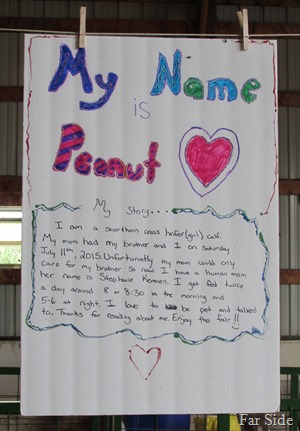 My Name
is
Peanut
My Story...
I am a shorthorn cross heifer (girl) calf.
My mom had my brother and I on Saturday
July 11th, 2015. Unfortunatly my mom could only
care for my brother so now I have a human mom
her name is Stephanie I get fed twice
a day around 8 or 8:30 in the morning and
5-6 at night. I love to be pet and talked
to. Thanks for reading about me. Enjoy the fair!!
Far Side